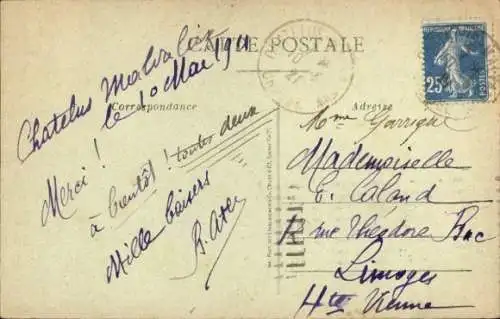 CARTE POSTALE
Correspondance
Adresse
Chatelus Malvaleix
le 10 Mai 1911
Merci !
à bientôt ! toutes deux
Mille baisers
25
POSTES
Mme Garrigue
Mademoiselle
E. Caland
rue Théodore Bac
Limoges
Hte Vienne